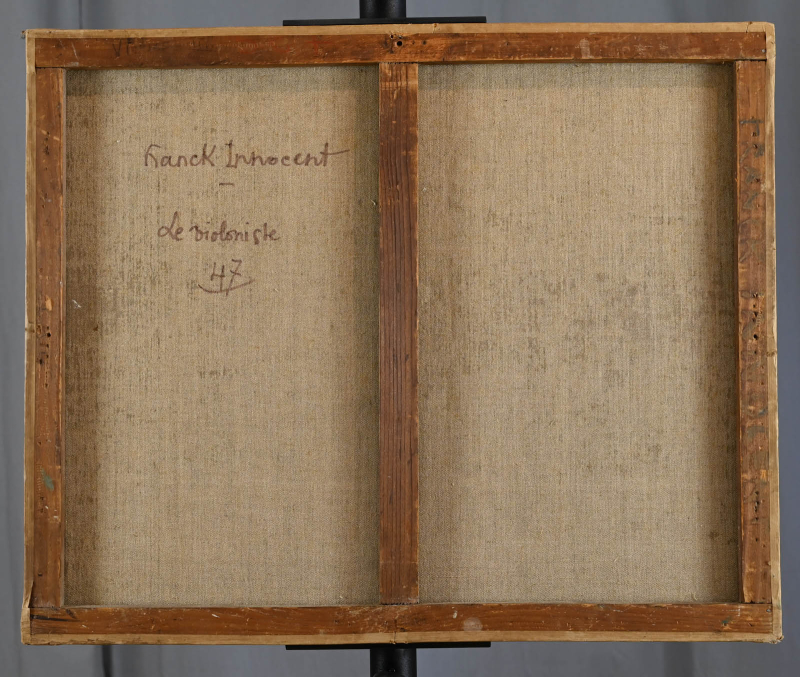 Franck Innocent
Le violoniste
47